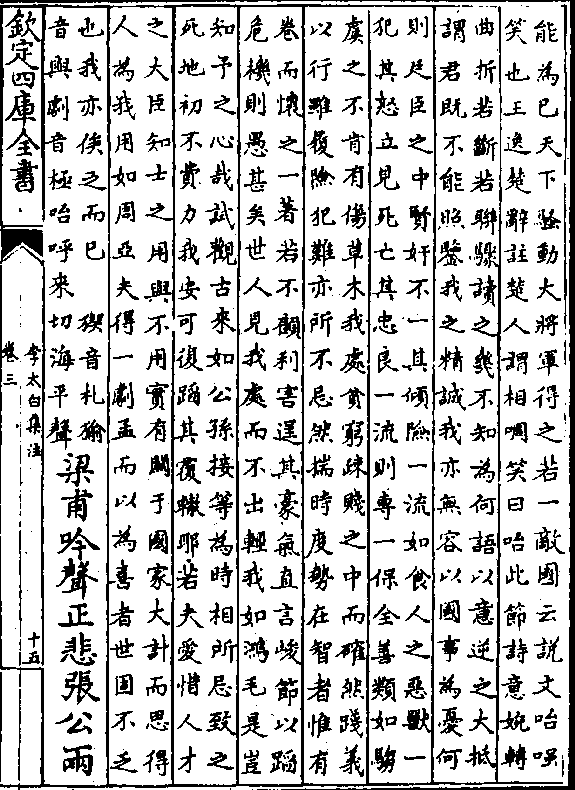 能為已天下騷動大將軍得之若一敵國云說文咍㗛
笑也王逸楚辭註楚人謂相啁笑曰咍此節詩意婉轉
曲折若斷若聯驟讀之幾不知為何語以意逆之大抵
謂君既不能照鑒我之精誠我亦無容以國事為憂何
則廷臣之中賢奸不一其傾險一流如食人之惡獸一
犯其怒立見死亡其忠良一流則專一保全善類如騶
虞之不肯有傷草木我處貧窮疎賤之中而確然踐義
以行雖履險犯難亦所不忌然揣時度勢在智者惟有
卷而懷之一著若不顧利害逞其豪氣直言峻節以蹈
危機則愚甚矣世人見我處而不出輕我如鴻毛是豈
知予之心哉試觀古來如公孫接等為時相所忌致之
死地初不費力我安可復蹈其覆轍耶若夫愛惜人才
之大臣知士之用與不用實有關于國家大計而思得
人為我用如周亞夫得一劇孟而以為喜者世固不乏
也我亦俟之而已 猰音札貐
音與劇音極咍呼來切海平聲
梁甫吟聲正悲張公兩
欽定四庫全書
李太白集注
卷三
十五